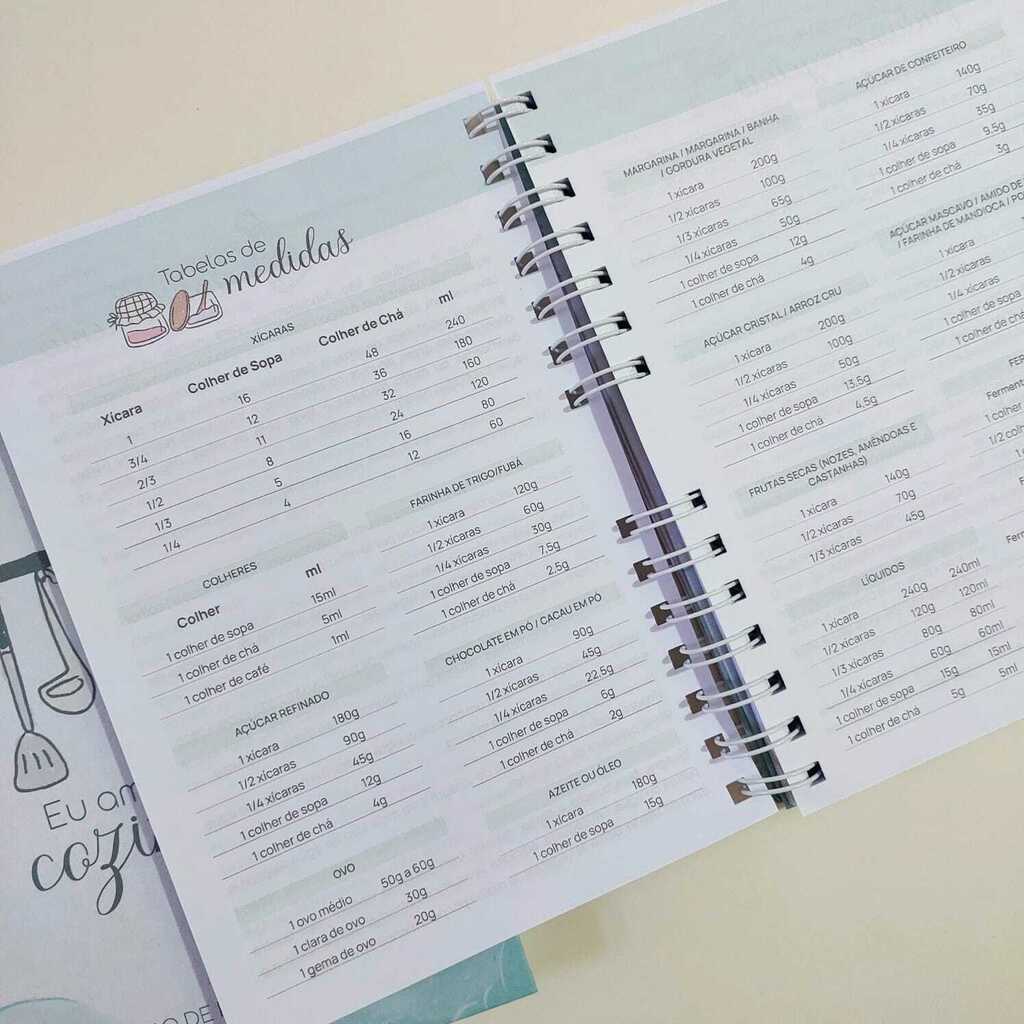 Tabelas de
medidas
XÍCARAS
Xícara Colher de Sopa Colher de Chá ml
1 16 48 240
3/4 12 36 180
2/3 11 32 160
1/2 8 24 120
1/3 5 16 80
1/4 4 12 60
COLHERES
Colher ml
1 colher de sopa 15ml
1 colher de chá 5ml
1 colher de café 1ml
AÇÚCAR REFINADO
1 xícara 180g
1/2 xícaras 90g
1/4 xícaras 45g
1 colher de sopa 12g
1 colher de chá 4g
OVO
1 ovo médio 50g a 60g
1 clara de ovo 30g
1 gema de ovo 20g
FARINHA DE TRIGO/FUBÁ
1 xícara 120g
1/2 xícaras 60g
1/4 xícaras 30g
1 colher de sopa 7,5g
1 colher de chá 2,5g
CHOCOLATE EM PÓ / CACAU EM PÓ
1 xícara 90g
1/2 xícaras 45g
1/4 xícaras 22,5g
1 colher de sopa 6g
1 colher de chá 2g
AZEITE OU ÓLEO
1 xícara 180g
1 colher de sopa 15g
MARGARINA / MARGARINA / BANHA
/ GORDURA VEGETAL
1 xícara 200g
1/2 xícaras 100g
1/3 xícaras 65g
1/4 xícaras 50g
1 colher de sopa 12g
1 colher de chá 4g
AÇÚCAR CRISTAL / ARROZ CRU
1 xícara 200g
1/2 xícaras 100g
1/4 xícaras 50g
1 colher de sopa 13,5g
1 colher de chá 4,5g
FRUTAS SECAS (NOZES, AMÊNDOAS E
CASTANHAS)
1 xícara 140g
1/2 xícaras 70g
1/3 xícaras 45g
LÍQUIDOS
1 xícara 240g 240ml
1/2 xícaras 120g 120ml
1/3 xícaras 80g 80ml
1/4 xícaras 60g 60ml
1 colher de sopa 15g 15ml
1 colher de chá 5g 5ml
AÇÚCAR DE CONFEITEIRO
1 xícara 140g
1/2 xícaras 70g
1/4 xícaras 35g
1 colher de sopa 9,5g
1 colher de chá 3g
AÇÚCAR MASCAVO / AMIDO DE
/ FARINHA DE MANDIOCA /
1 xícara
1/2 xícaras
1/4 xícaras
1 colher de sopa
1 colher de chá
1 colher
1/2 colh
1 co
Eu am
cozi